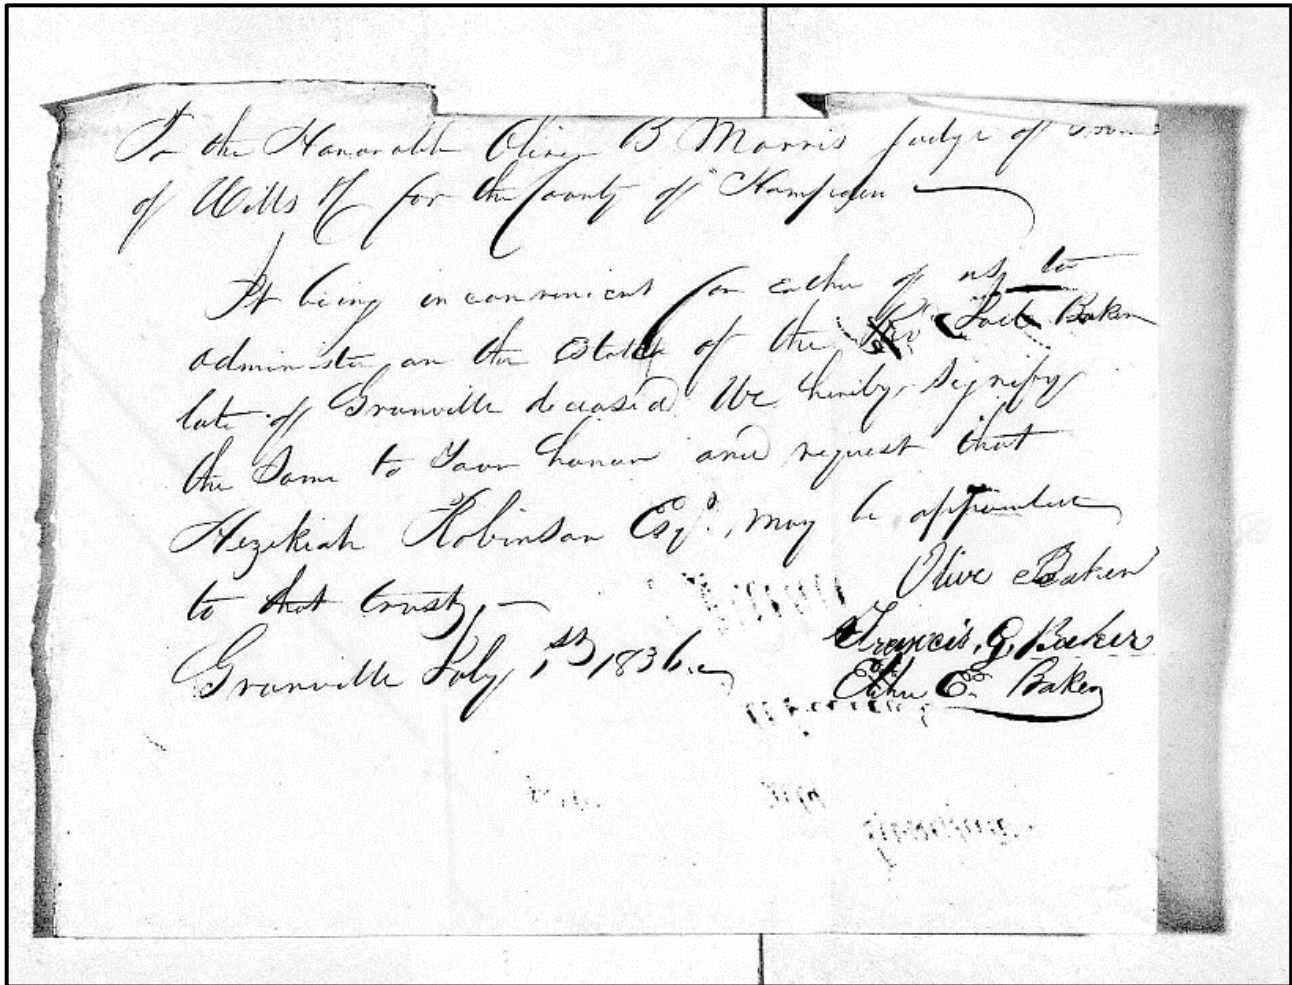 To the Honorable Oliver B Morris Judge of
of Wills &c for the County of Hampden
It being inconvenient for either of us to
administer on the Estate of the Rev Joel Baker
late of Granville deceased We hereby signify
the same to Your honor and request that
Hezekiah Robinson Esqr., may be appointed
to that trust,
Olive Baker
Francis, G, Baker
Granville July 1st 1836.
Elihu E. Baker